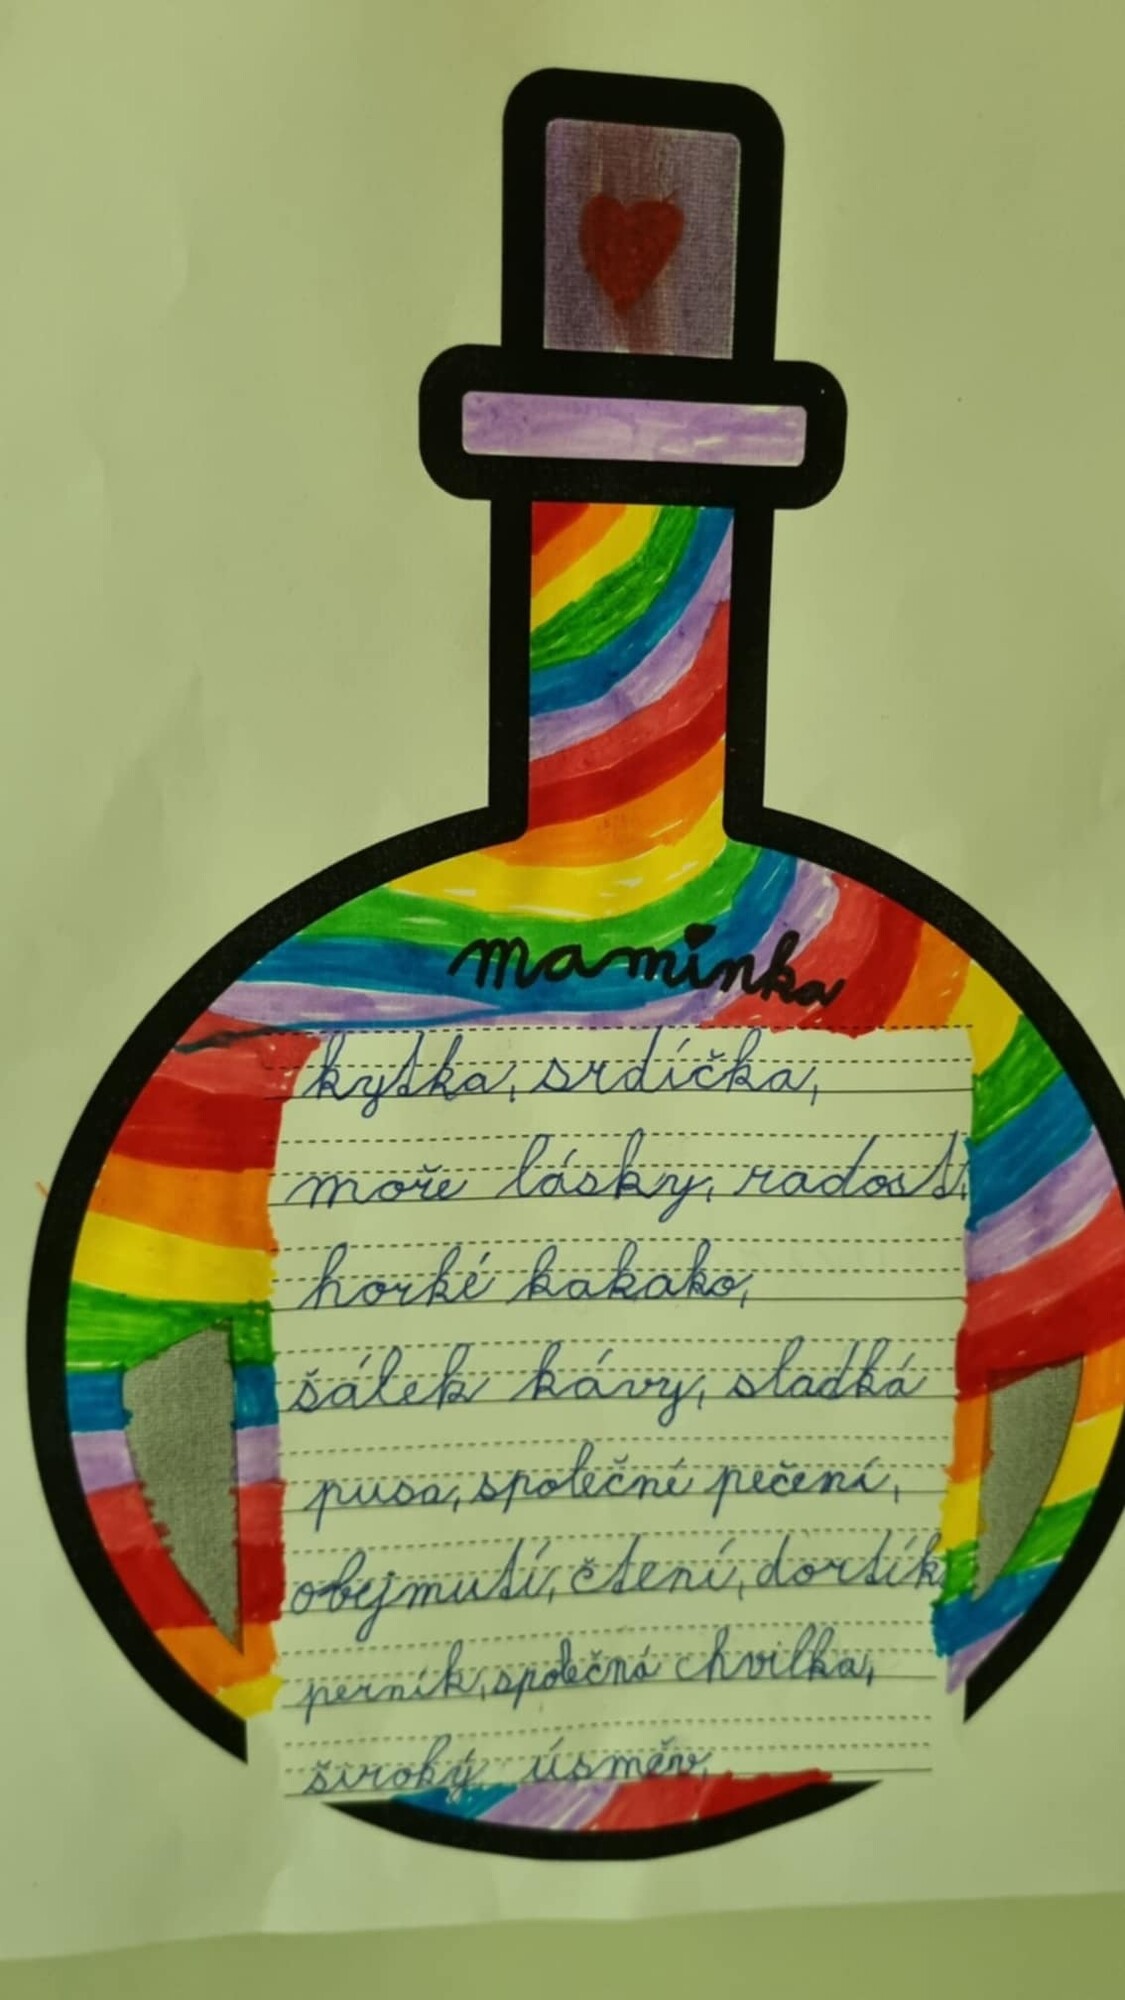 maminka
kytka, srdíčka,
moře lásky, radost,
horké kakako,
šálek kávy, sladká
pusa, společné pečení,
obejmutí, čtení, dortík
perník, společná chvilka,
široký úsměv,